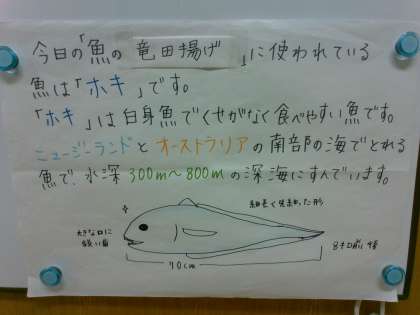 今日の「魚の 竜田揚げ 」に使われている
魚は「ホキ」です。
「ホキ」は白身魚でくせがなく食べやすい魚です。
ニュージーランドとオーストラリアの南部の海でとれる
魚で、水深300m～800mの深海にすんでいます。
細長く先細った形
大きな口に
鋭い歯